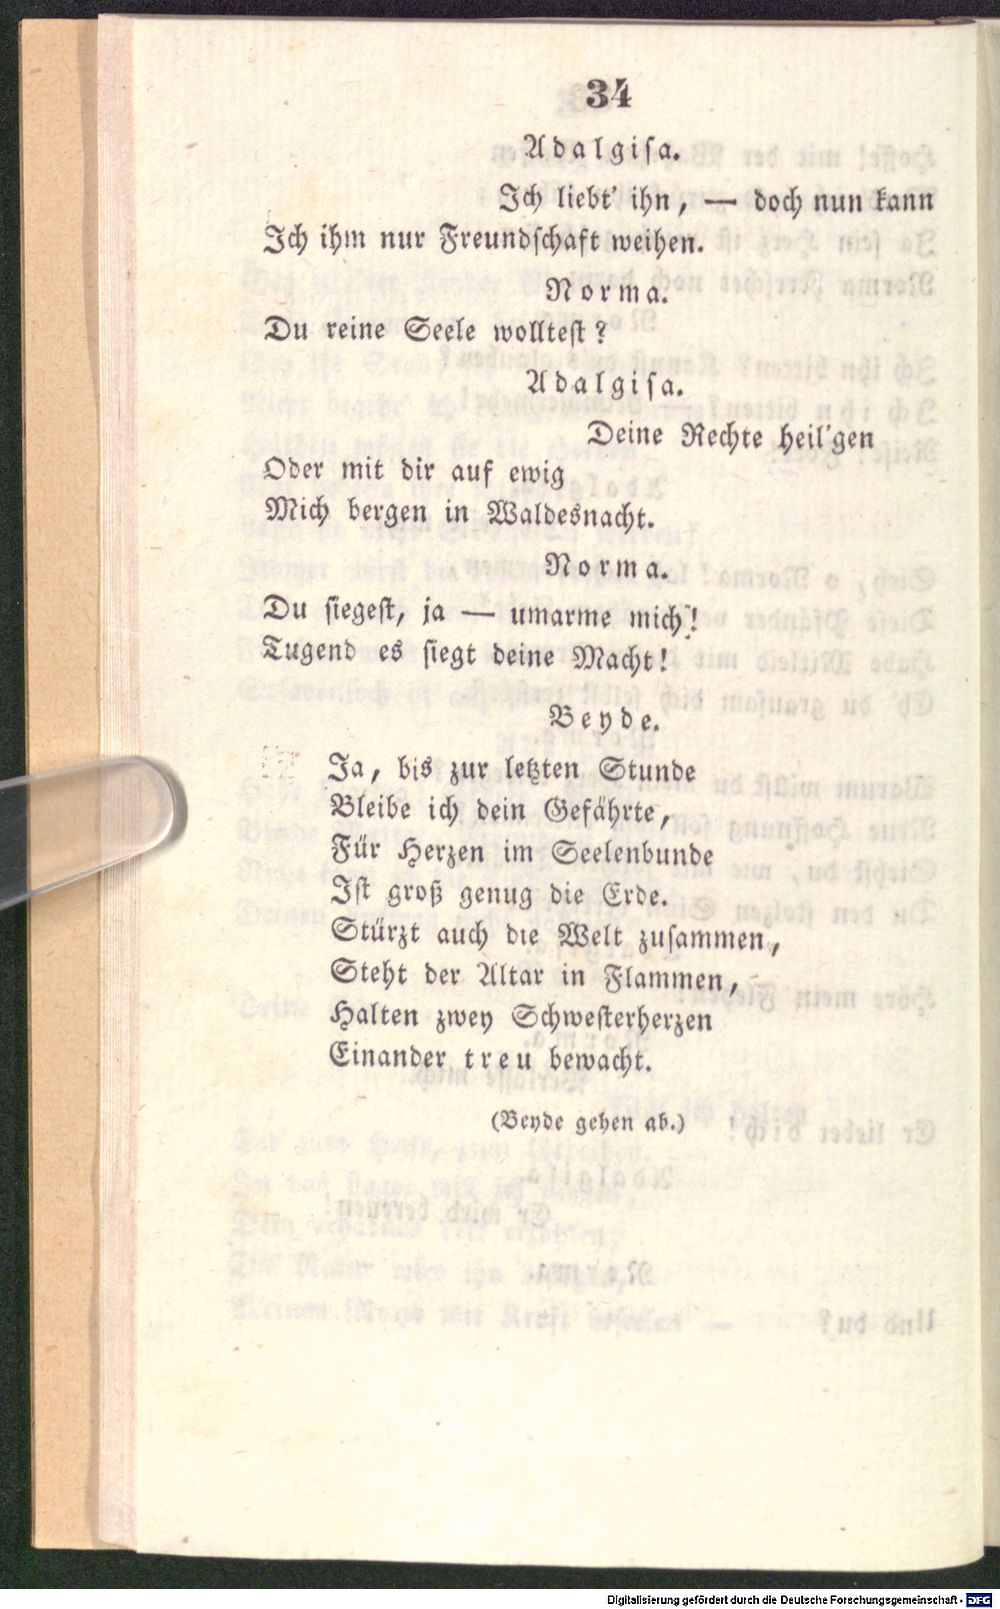 34
Adalgisa.
Ich liebt' ihn, — doch nun kann
Ich ihm nur Freundschaft weihen.
Norma.
Du reine Seele wolltest?
Adalgisa.
Deine Rechte heil'gen
Oder mit dir auf ewig
Mich bergen in Waldesnacht.
Norma.
Du siegest, ja — umarme mich!
Tugend es siegt deine Macht!
Beyde.
Ja, bis zur letzten Stunde
Bleibe ich dein Gefährte,
Für Herzen im Seelenbunde
Ist groß genug die Erde.
Stürzt auch die Welt zusammen,
Steht der Altar in Flammen,
Halten zwey Schwesterherzen
Einander treu bewacht.
(Beyde gehen ab.)
Digitalisierung gefördert durch die Deutsche Forschungsgemeinschaft - DFG